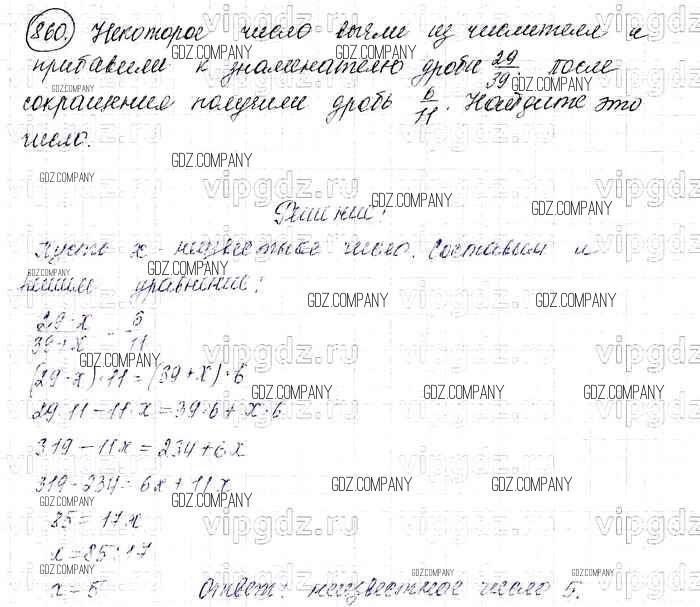 860. Некоторое число вычли из числителя и
прибавили к знаменателю дроби 29/39. после
сокращения получили дробь 6/11. Найдите это
число.
Решение:
Пусть x - неизвестное число. Составим и
решим уравнение:
29-x/39+x = 6/11
(29-x)·11=(39+x)·6
29·11-11·x=39·6+x·6
319-11x=234+6x
319-234=6x+11x
85=17x
x=85:17
x=5 Ответ: неизвестное число 5.
GDZ.COMPANY
vipgdz.ru